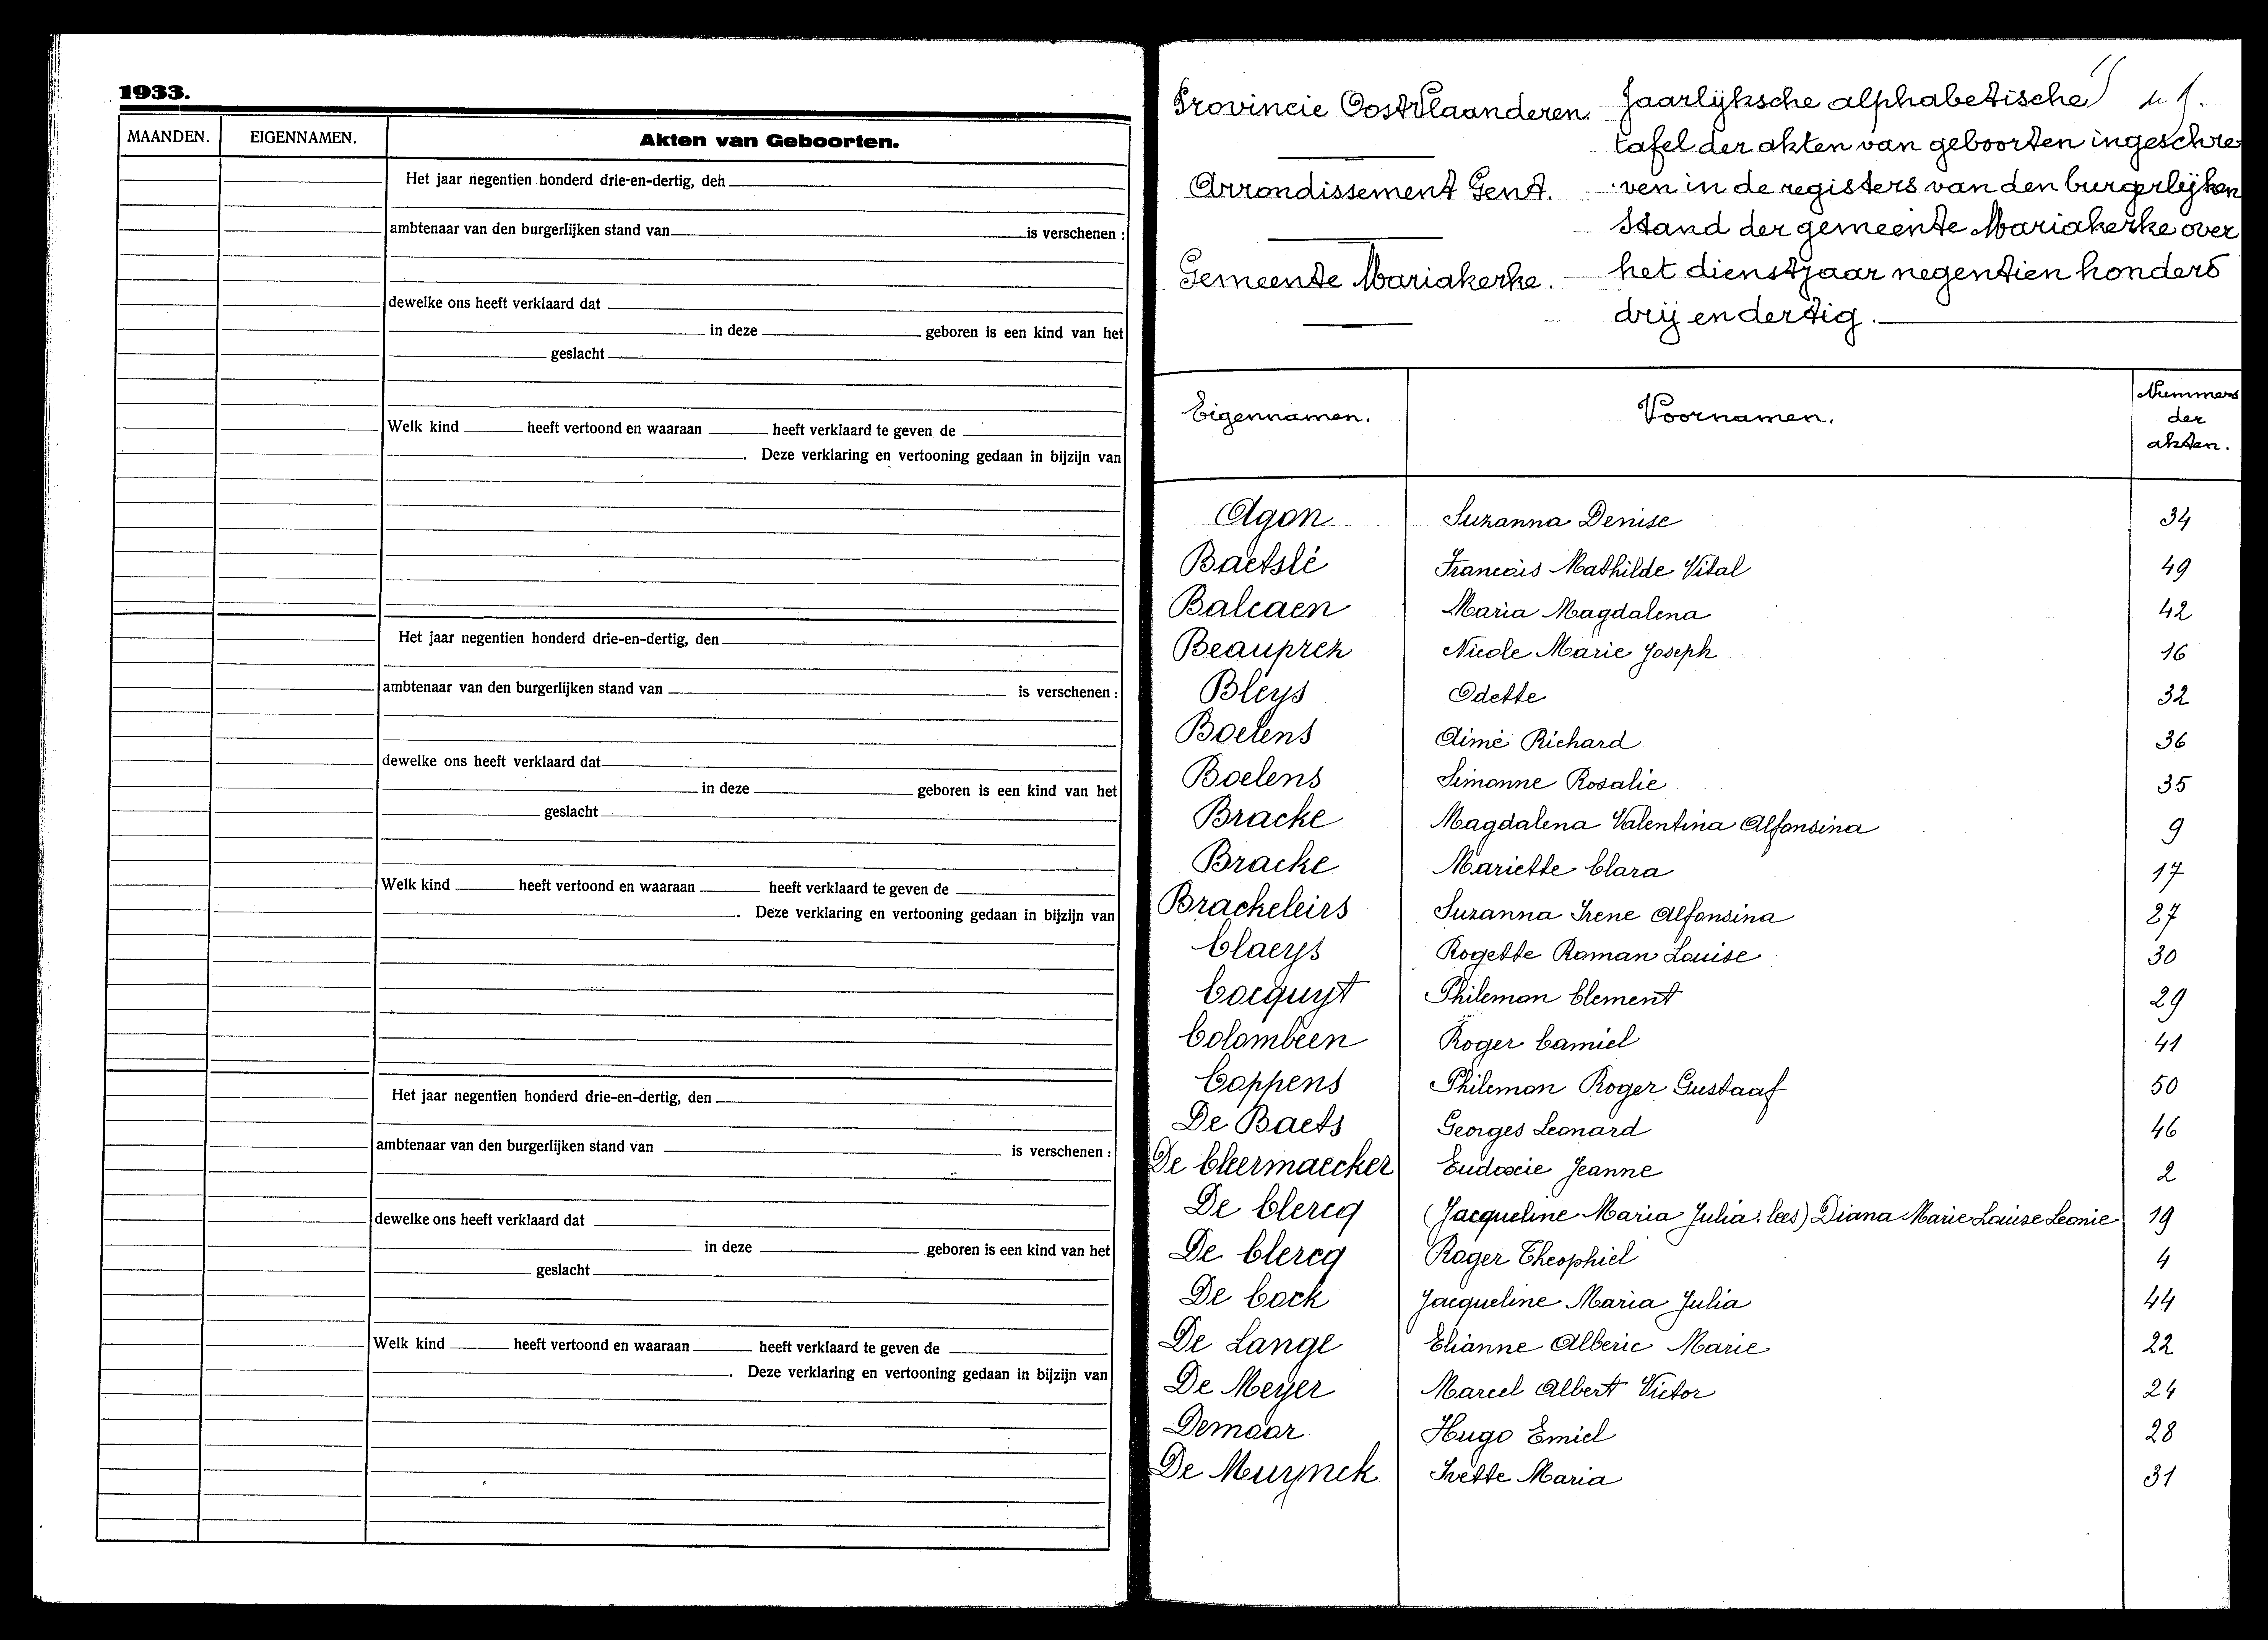 1933.
MAANDEN. EIGENNAMEN. Akten van Geboorten.
Het jaar negentien honderd drie-en-dertig, den
ambtenaar van den burgerlijken stand van is verschenen :
dewelke ons heeft verklaard dat
in deze geboren is een kind van het
geslacht
Welk kind heeft vertoond en waaraan heeft verklaard te geven de
. Deze verklaring en vertooning gedaan in bijzijn van
Het jaar negentien honderd drie-en-dertig, den
ambtenaar van den burgerlijken stand van is verschenen :
dewelke ons heeft verklaard dat
in deze geboren is een kind van het
geslacht
Welk kind heeft vertoond en waaraan heeft verklaard te geven de
. Deze verklaring en vertooning gedaan in bijzijn van
Het jaar negentien honderd drie-en-dertig, den
ambtenaar van den burgerlijken stand van is verschenen :
dewelke ons heeft verklaard dat
in deze geboren is een kind van het
geslacht
Welk kind heeft vertoond en waaraan heeft verklaard te geven de
. Deze verklaring en vertooning gedaan in bijzijn van
Provincie OostVlaanderen.
Arrondissement Gent.
Gemeente Mariakerke.
Jaarlijksche alphabetische
tafel der akten van geboorten ingeschre
ven in de registers van den burgerlijken
stand der gemeente Mariakerke over
het dienstjaar negentien honderd
drij en dertig.
Eigennamen. Voornamen. Nummers
der
akten.
Agon Suzanna Denise 34
Baetslé Francois Mathilde Vital 49
Balcaen Maria Magdalena 42
Beauprez Nicole Marie Joseph 16
Bleys Odette 32
Boelens Aimé Richard 36
Boelens Simonne Rosalie 35
Bracke Magdalena Valentina Alfonsina 9
Bracke Mariette Clara 17
Brackeleirs Suzanna Irene Alfonsina 27
Claeys Rogette Roman Louise 30
Cocquyt Philemon Clement 29
Colombeen Roger Camiel 41
Coppens Philemon Roger Gustaaf 50
De Baets Georges Leonard 46
De Cleermaecker Eudoxie Jeanne 2
De Clercq (Jacqueline Maria Julia: lees) Diana Marie Louise Leonie 19
De Clercq Roger Theophiel 4
De Cock Jacqueline Maria Julia 44
De Lange Elianne Alberic Marie 22
De Meyer Marcel Albert Victor 24
Demoor Hugo Emiel 28
De Muynck Ivette Maria 31